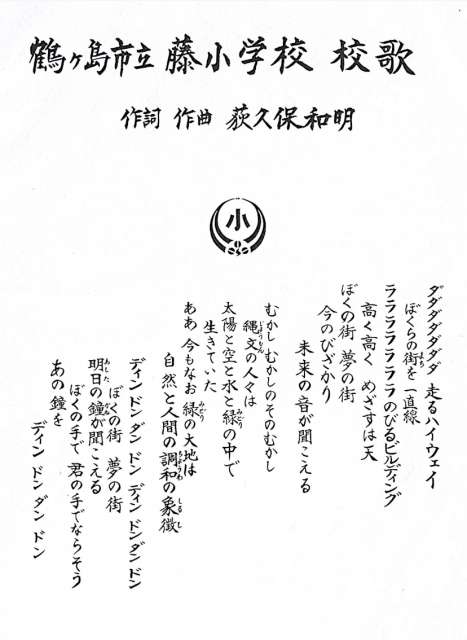 鶴ヶ島市立 藤小学校 校歌
作詞 作曲 荻久保和明
小
ダダダダダダダ 走るハイウェイ
ぼくらの街を一直線
ラララララララのびるビルディング
高く高く めざすは天
ぼくの街 夢の街
今のびざかり
未来の音が聞こえる
むかしむかしのそのむかし
縄文の人々は
太陽と空と水と緑の中で
生きていた
ああ 今もなお 緑の大地は
自然と人間の調和の象徴
ディン ドン ダン ドン ディン ドンダンドン
ぼくの街 夢の街
明日の鐘が聞こえる
ぼくの手で 君の手でならそう
あの鐘を
ディン ドン ダン ドン